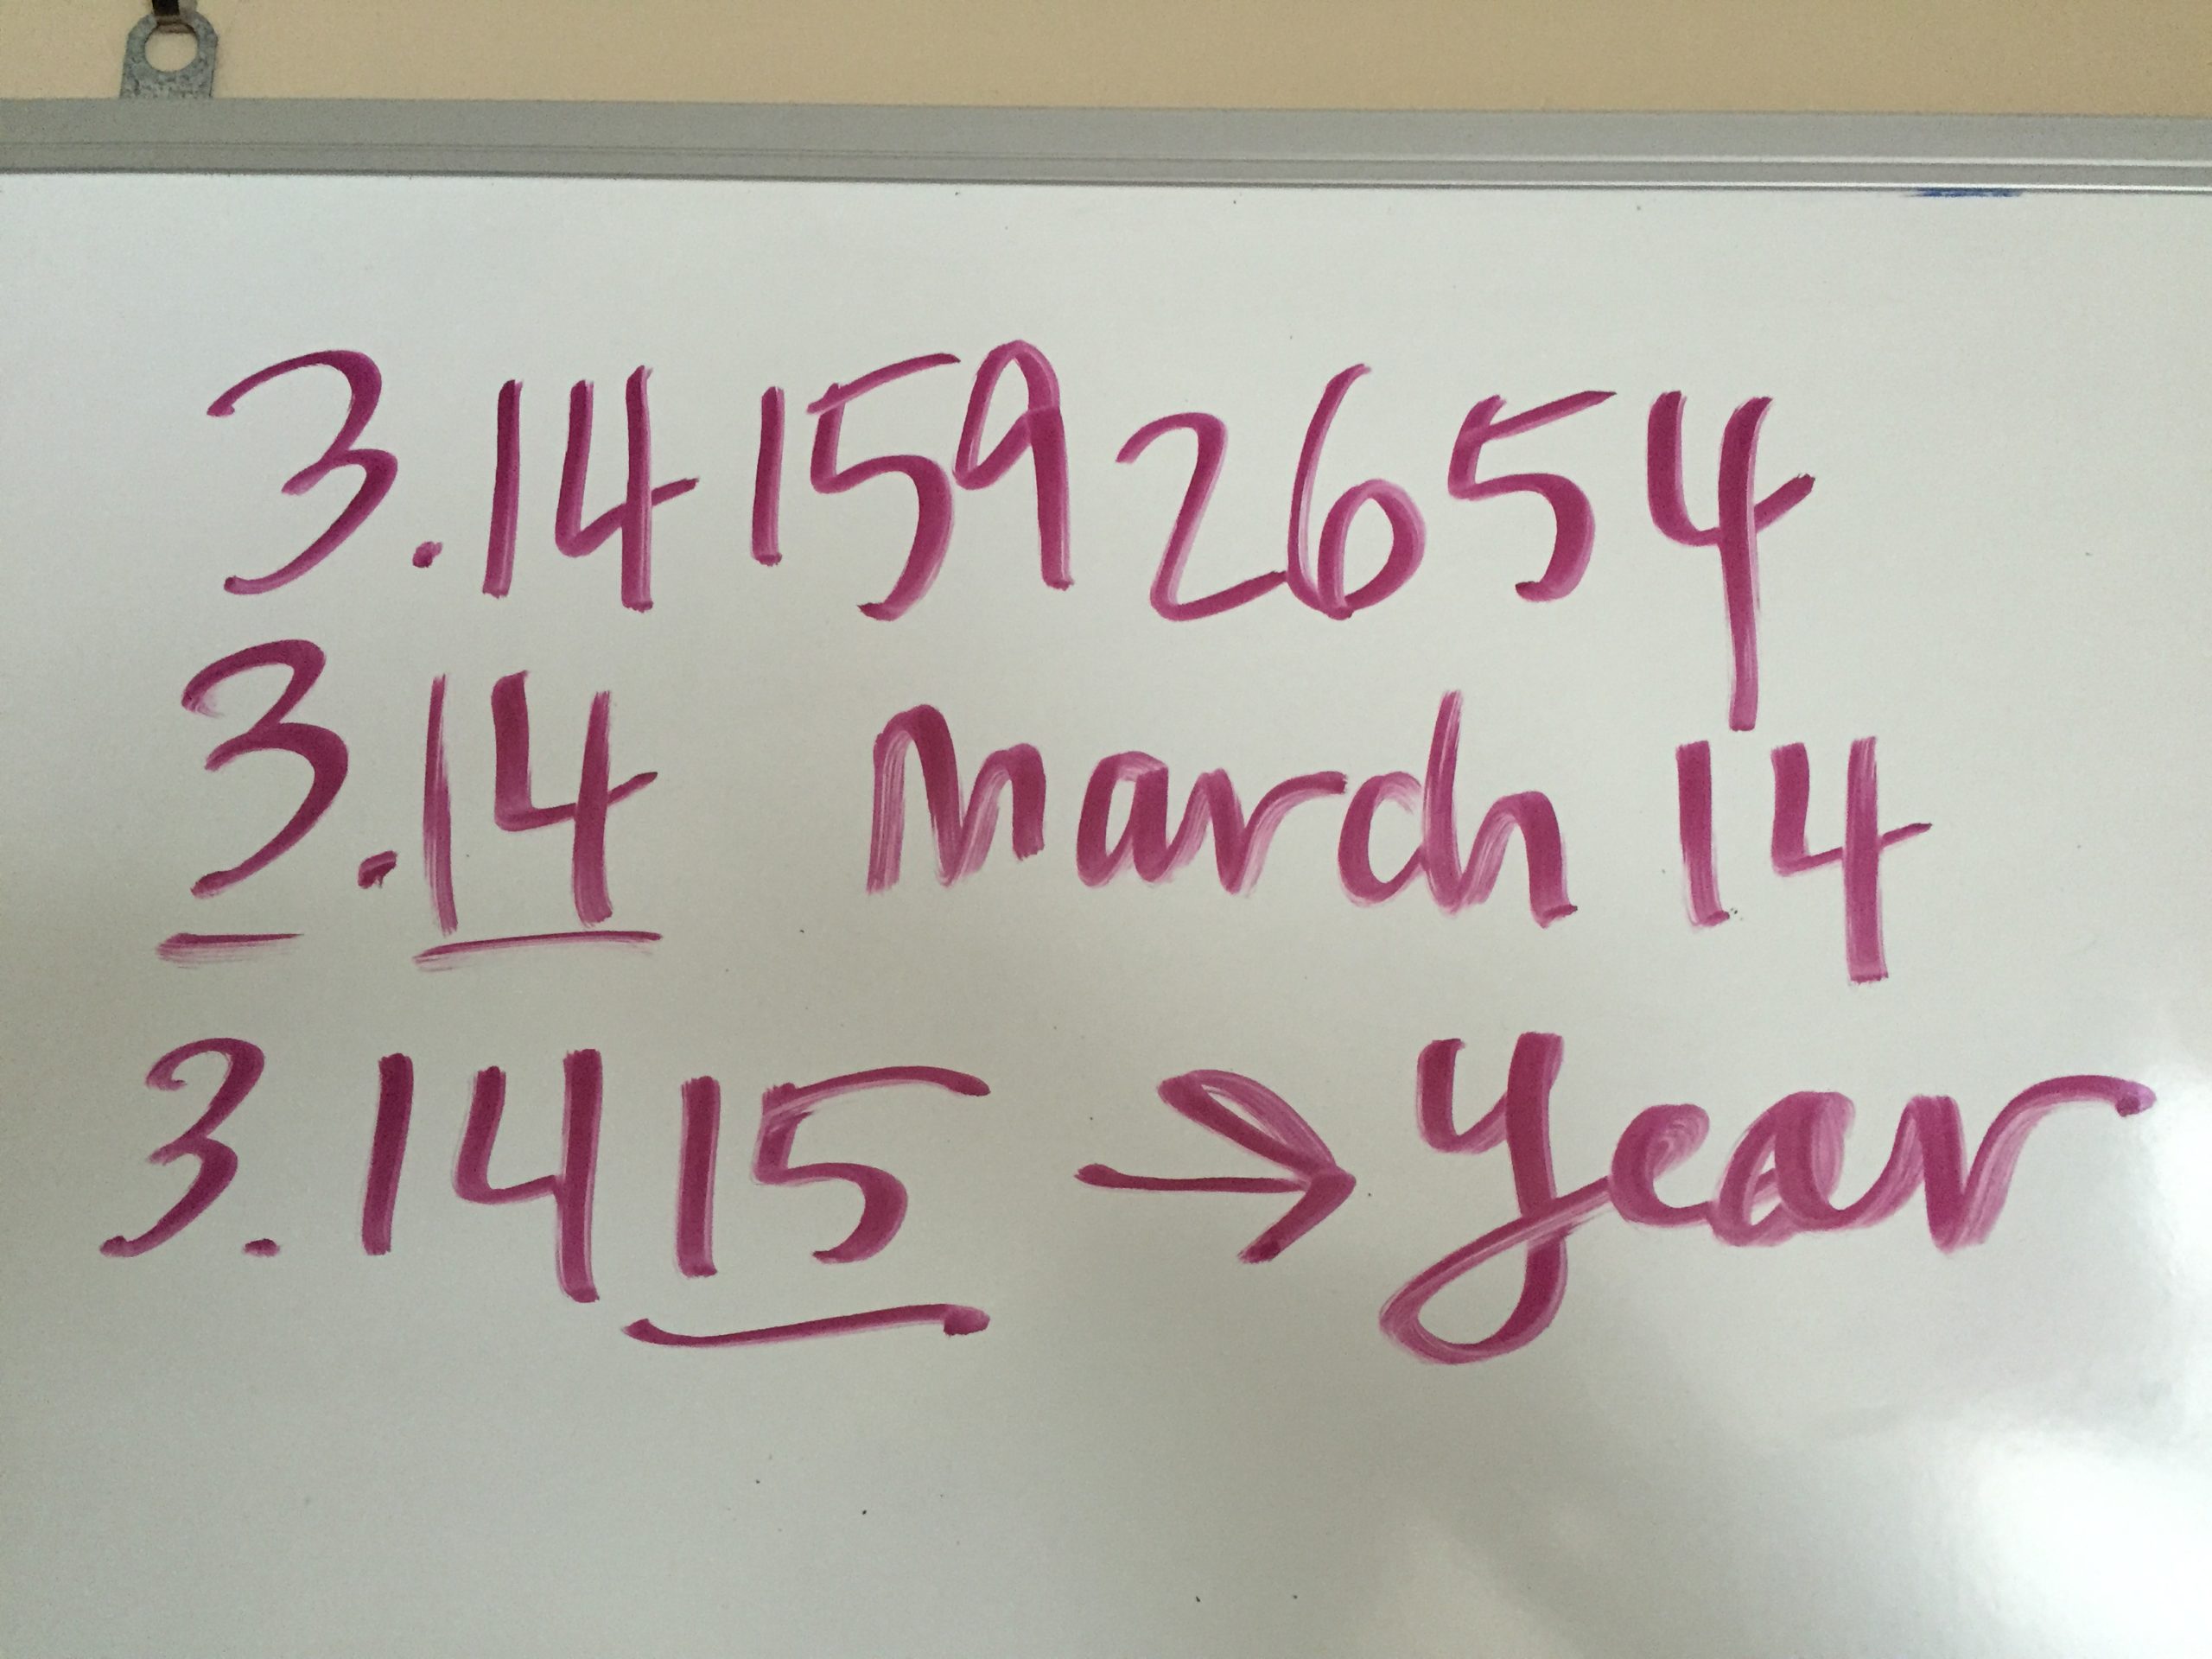 3.141592654
3.14 March 14
3.1415 → year